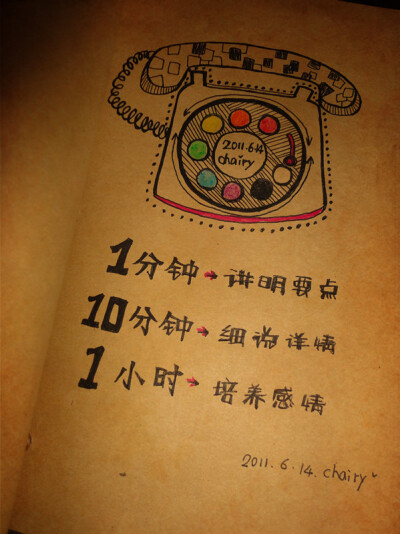 2011.6.14
chairy
1分钟→讲明要点
10分钟→细说详情
1小时→培养感情
2011.6.14.chairy